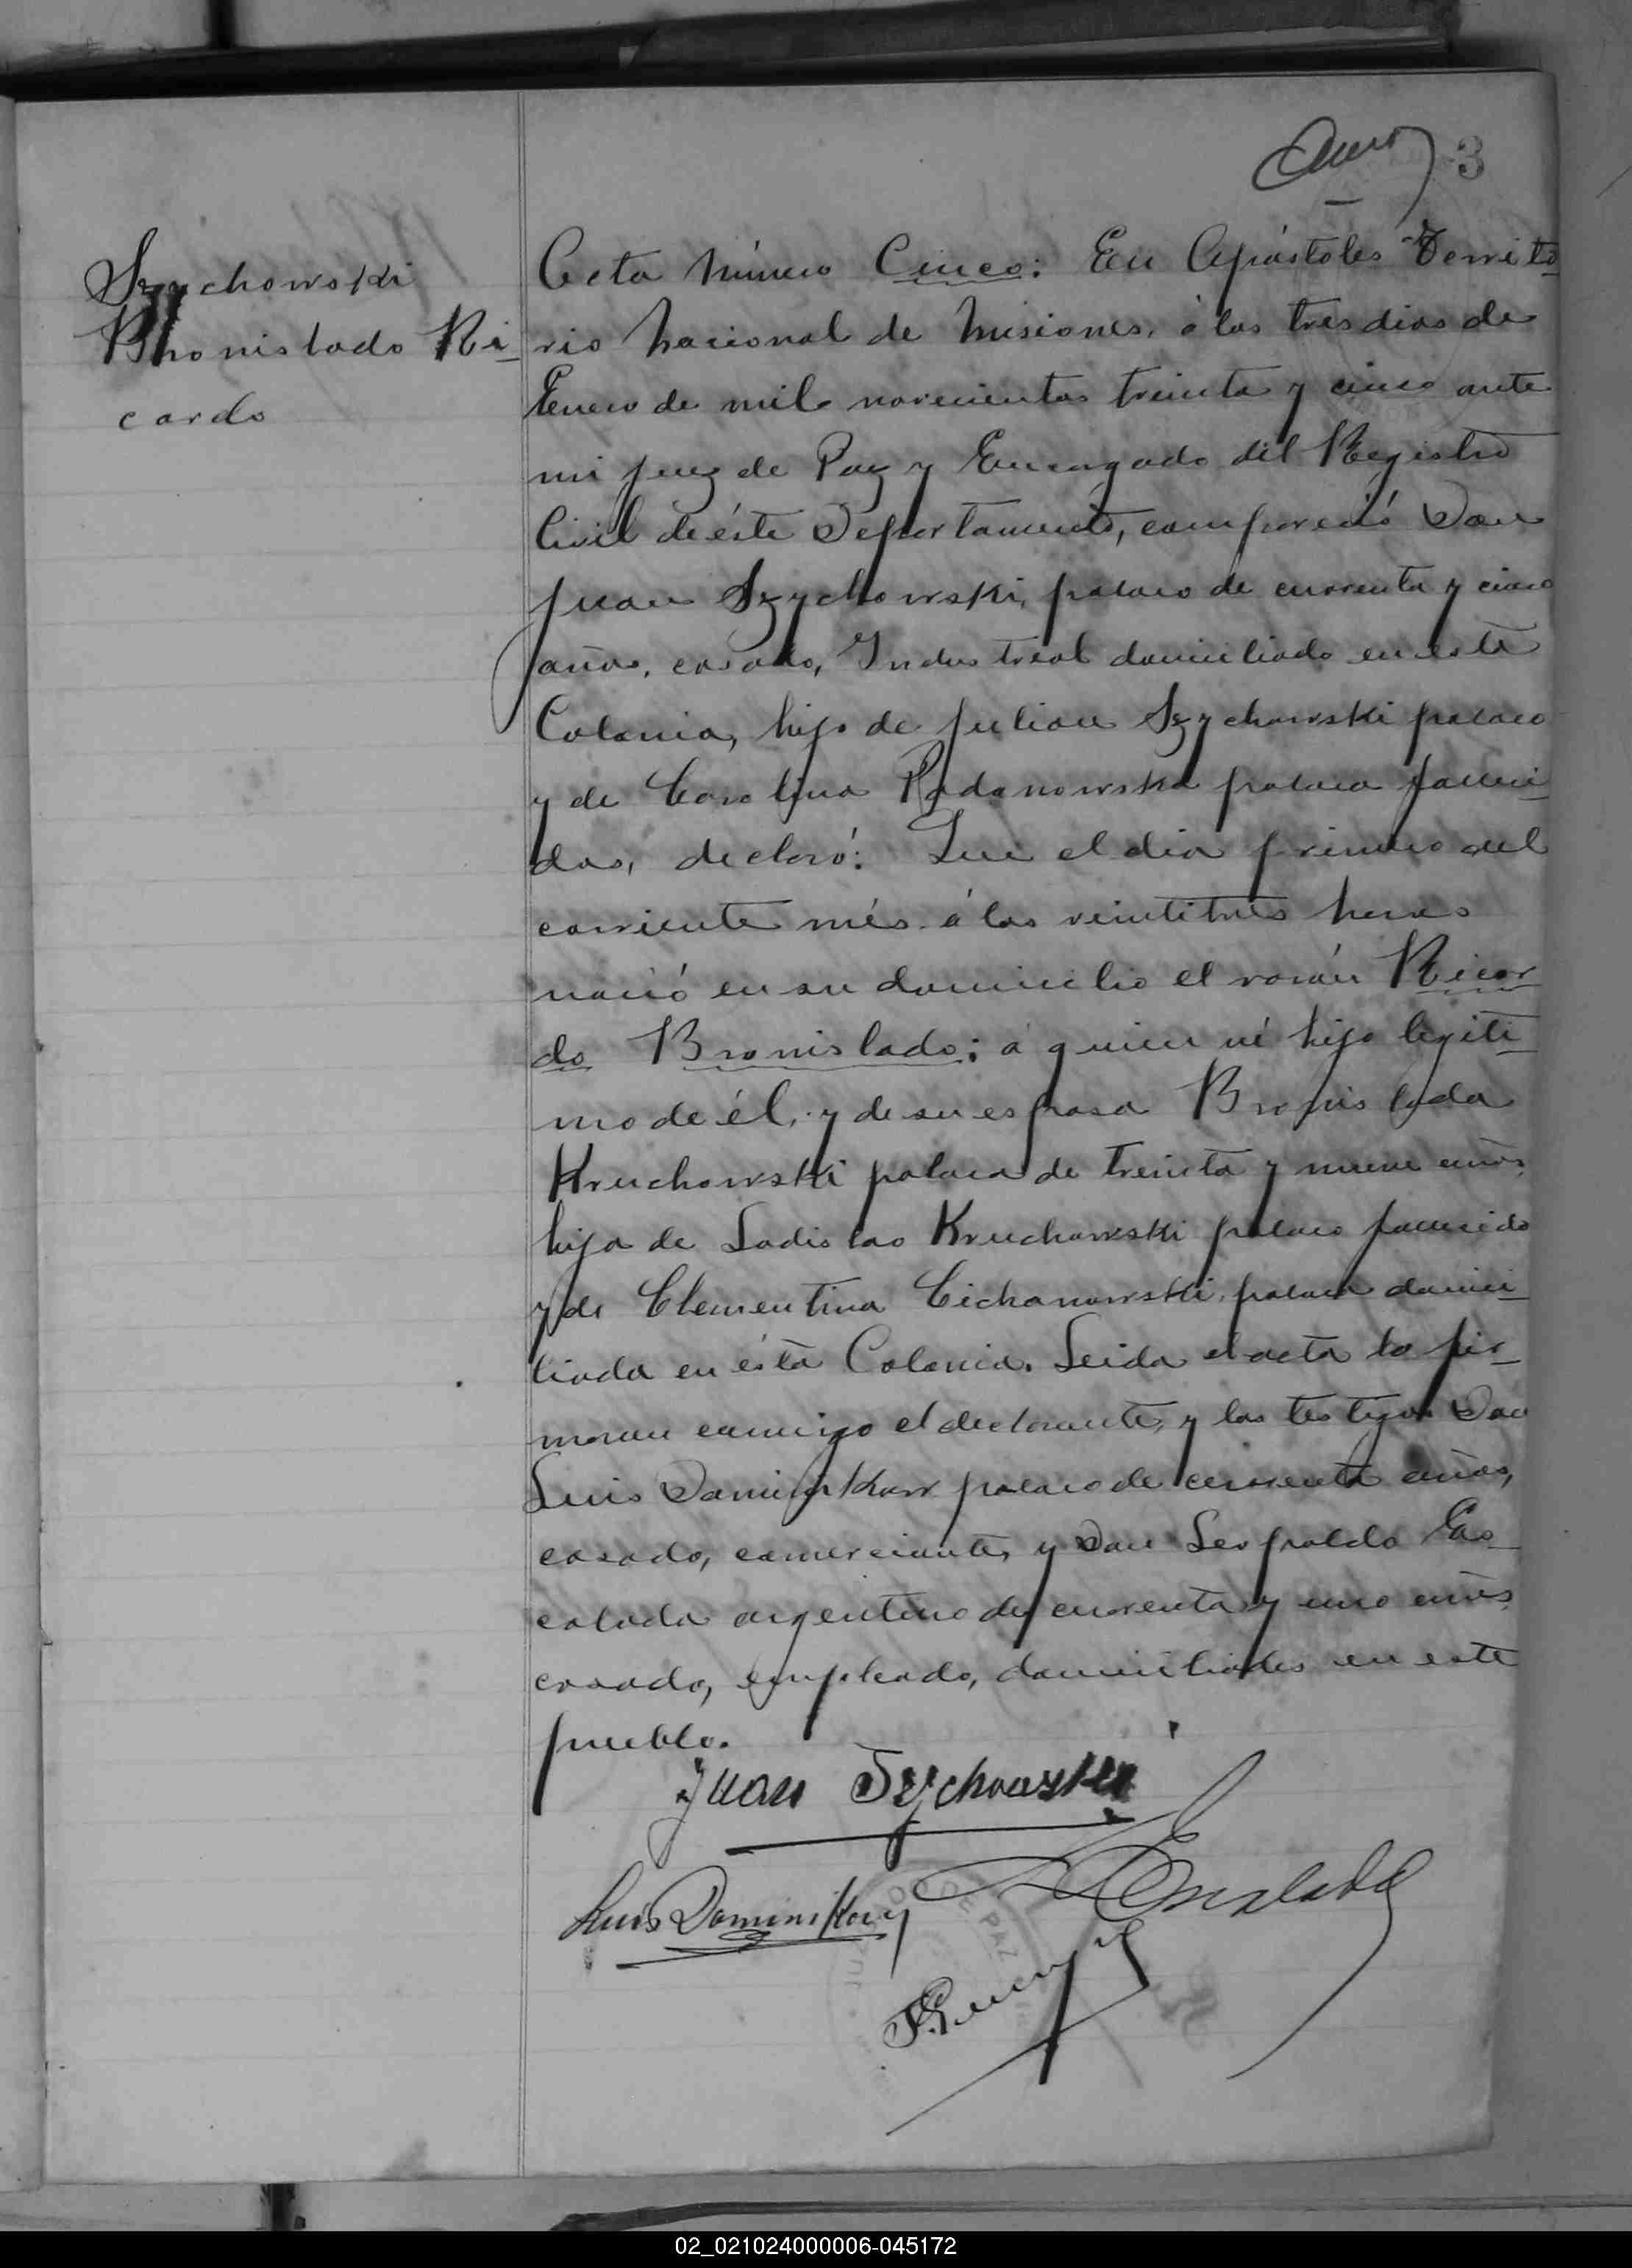 3
Szychowski
Bronislado Ri-
cardo
Acta número Cinco: En Apóstoles Territo-
rio Nacional de Misiones, á los tres dias de
Enero de mil novecientos treinta y cinco ante
mi Juez de Paz y Encargado del Registro
Civil de éste Departamento, compareció Don
Juan Szychowski, polaco de cuarenta y cinco
años, casado, Industrial domiciliado en esta
Colonia, hijo de Julian Szychowski polaco
y de Carolina Radanowska polaca falleci-
dos, declaró: Que el dia primero del
corriente més á las veintitrés horas
nació en su domicilio el varón Ricar-
do Bronislado; á quien ví hijo legíti-
mo de él, y de su esposa Bronislada
Kruchowski polaca de treinta y nueve años
hija de Ladislao Kruchowski polaco fallecido
y de Clementina Cichanowski, polaca domici-
liada en ésta Colonia. Leida el acta la fir-
maron conmigo el declarante, y los testigos Don
Luis Dominikow polaco de cuarenta años,
casado, comerciante, y Don Leopoldo Es-
calada argentino de cuarenta y uno años
casado, empleado, domiciliados en este
pueblo.
Juan Szychowski
Luis Dominikow
L Escalada
DE PAZ
02_021024000006-045172